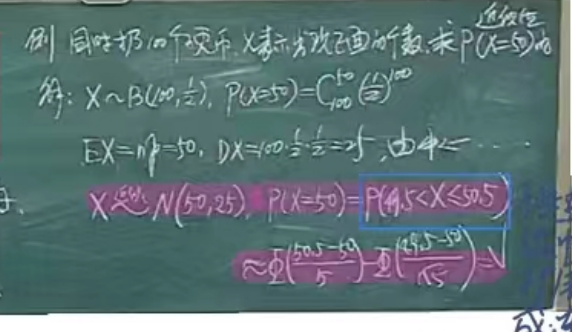 近似值
例 同时扔100个硬币,X表示出现正面的个数,求P(X=50)的
解: X~B(100,1/2), P(X=50)=C_{100}^{50}(1/2)^{100}
EX=np=50, DX=100·1/2·1/2=25, 由中……
X 近似~ N(50,25), P(X=50)=P(49.5<X≤50.5)
≈Φ((50.5-50)/5)-Φ((49.5-50)/5)=√